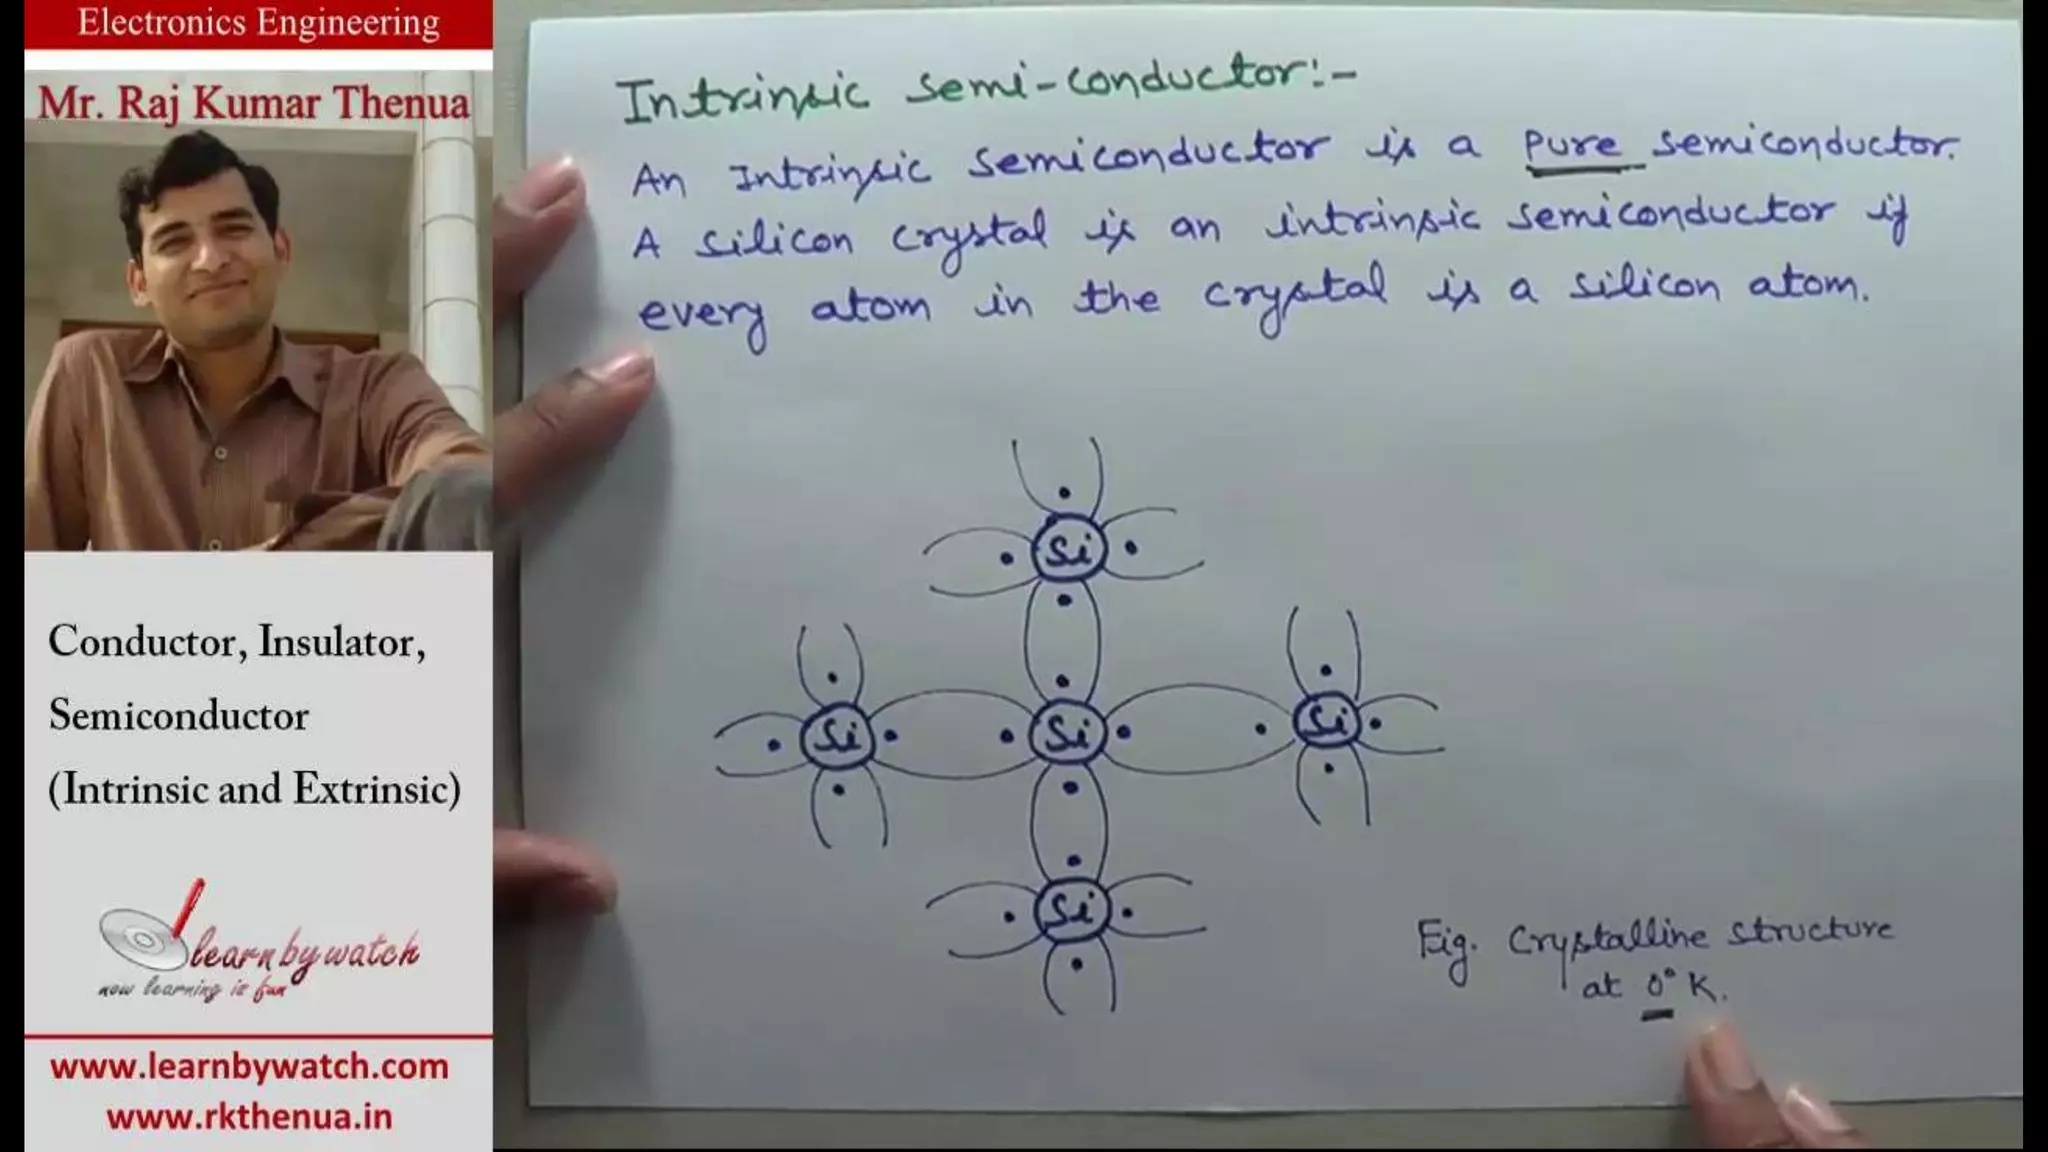 Electronics Engineering
Mr. Raj Kumar Thenua
Conductor, Insulator,
Semiconductor
(Intrinsic and Extrinsic)
learnbywatch
now learning is fun
www.learnbywatch.com
www.rkthenua.in
Intrinsic semi-conductor:-
An Intrinsic semiconductor is a pure semiconductor.
A silicon crystal is an intrinsic semiconductor if
every atom in the crystal is a silicon atom.
Si
Si Si Si
Si
Fig. Crystalline structure
at 0° K.